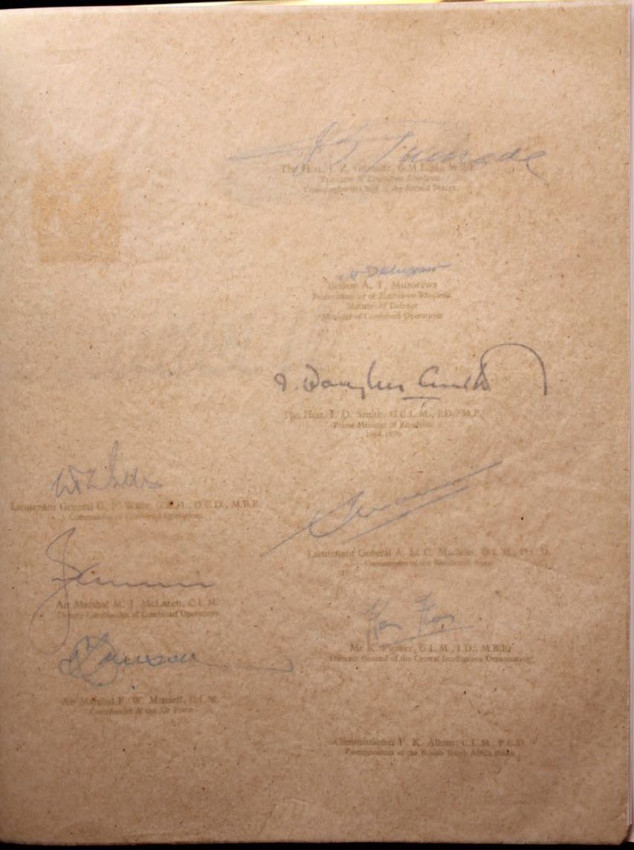 The Hon. J. Z. Gumede,
President of Zimbabwe Rhodesia
Commander-in-Chief of the Armed Forces
Bishop A. T. Muzorewa
Prime Minister of Zimbabwe Rhodesia
Minister of Defence
Minister of Combined Operations
I. Douglas Smith
The Hon. I. D. Smith, G.C.L.M., I.D., M.P.
Prime Minister of Rhodesia
1964-1979
Lieutenant General G. P. Walls, G.L.M., D.C.D., M.B.E.
Commander of Combined Operations
Lieutenant General A. L. C. Maclean, O.L.M., D.C.D.
Commander of the Rhodesian Army
Air Marshal M. J. McLaren, C.L.M.
Deputy Commander of Combined Operations
Mr. K. Flower, G.L.M., I.D., M.B.E.
Director General of the Central Intelligence Organisation
Air Marshal F. W. Mussell, O.L.M.
Commander of the Air Force
Commissioner P. K. Allum, C.L.M., P.C.D.
Commissioner of the British South Africa Police